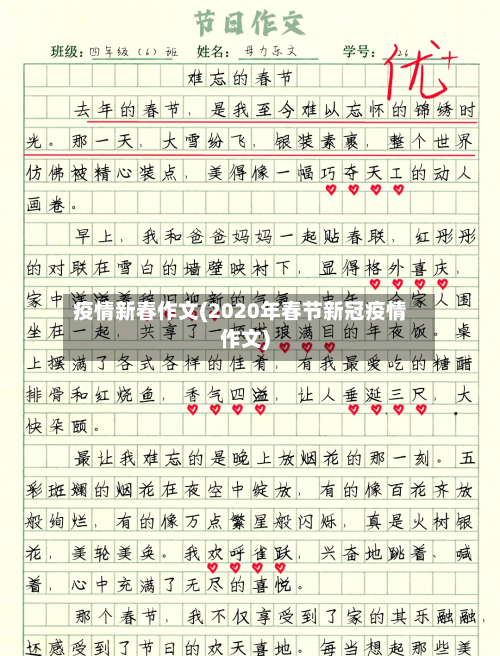 节日作文
班级：四年级（6）班 姓名： 学号：26
优+
难忘的春节
去年的春节，是我至今难以忘怀的锦绣时
光。那一天，大雪纷飞，银装素裹，整个世界
仿佛被精心装点，美得像一幅巧夺天工的动人
画卷。
早上，我和爸爸妈妈一起贴春联，红彤彤
的对联在雪白的墙壁映衬下，显得格外喜庆，
家中洋溢着
人围
疫情新春作文(2020年春节新冠疫情
坐在一起，共享了一顿琳琅满目的年夜饭。桌
作文)
上摆满了各式各样的佳肴，有我最爱吃的糖醋
排骨和红烧鱼，香气四溢，让人垂涎三尺，大
快朵颐。
最让我难忘的是晚上放烟花的那一刻。五
彩斑斓的烟花在夜空中绽放，有的像百花齐放
般绚烂，有的像万点繁星般闪烁，真是火树银
花，美轮美奂。我欢呼雀跃，兴奋地跳着、喊
着，心中充满了无尽的喜悦。
那个春节，我不仅享受到了家的其乐融融，
还感受到了节日的欢天喜地。每当想起那些美